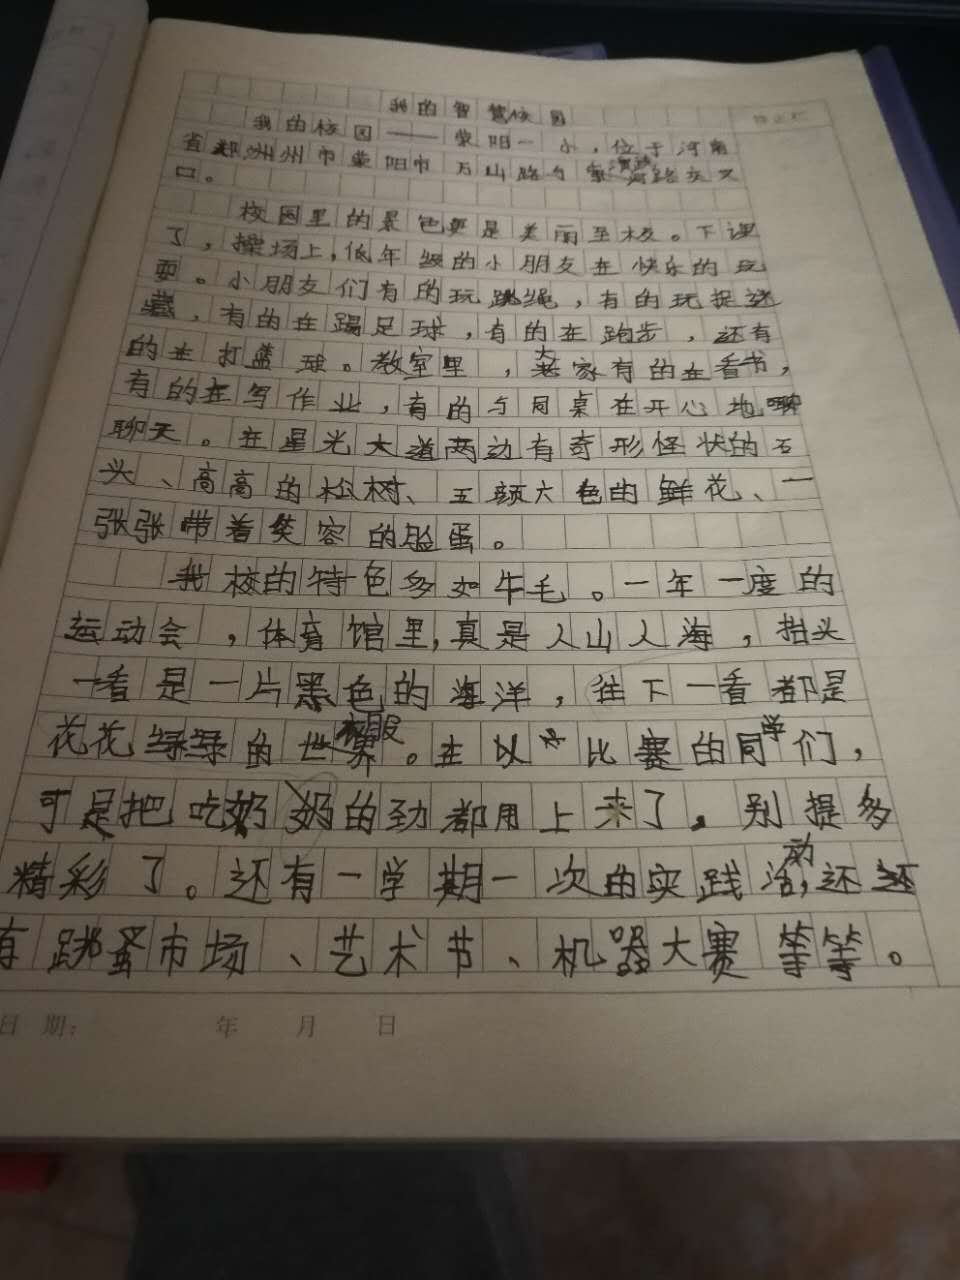 我的智慧校园
修正栏
我的校园——荥阳一小,位于河南
省郑州市荥阳市万山路与索河路交叉
口。
校园里的景色更是美丽至极。下课
了,操场上,低年级的小朋友在快乐的玩
耍。小朋友们有的玩跳绳,有的玩捉迷
藏,有的在踢足球,有的在跑步,还有
的在打蓝球。教室里,大家有的在看书,
有的在写作业,有的与同桌在开心地
聊天。在星光大道两边有奇形怪状的石
头、高高的松树、五颜六色的鲜花、一
张张带着笑容的脸蛋。
我校的特色多如牛毛。一年一度的
运动会,体育馆里,真是人山人海,抬头
一看是一片黑色的海洋,往下一看都是
花花绿绿的衣服。在以比赛的同学们,
可是把吃奶的劲都用上来了。别提多
精彩了。还有一学期一次的实践活动,还
有跳蚤市场、艺术节、机器大赛等等。
日期: 年 月 日